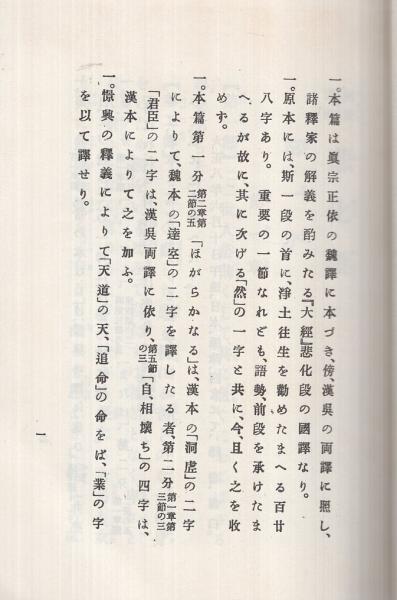 一。本篇は眞宗正依の魏譯に本づき、傍、漢吳の兩譯に照し、
諸釋家の解義を酌みたる『大經』悲化段の國譯なり。
一。原本には、斯一段の首に、淨土往生を勸めたまへる百廿
八字あり。重要の一節なれども、語勢、前段を承けたま
へるが故に、其に次げる「然」の一字と共に、今、且く之を收
めず。
一。本篇第一分第二章第二節の五「ほがらかなる」は、漢本の「洞虛」の二字
によりて、魏本の「達空」の二字を譯したる者、第二分第一章第三節の三
「君臣」の二字は、漢吳兩譯に依り、第五節の三「自、相壞ち」の四字は、
漢本によりて之を加ふ。
一。憬興の釋義によりて「天道」の天、「追命」の命をば、「業」の字
を以て譯せり。
一